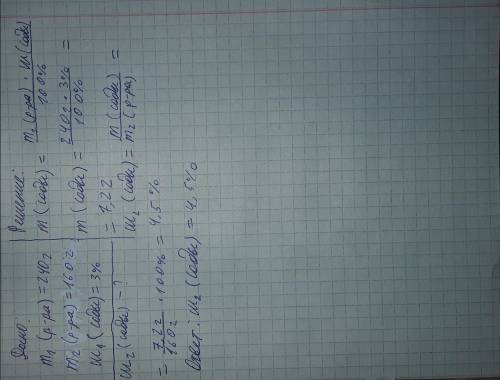 Дано:
m₁ (р-ра) = 240г
m₂ (р-ра) = 160г
ω₁ (соды) = 3%
ω₂ (соды) - ?
Решение:
m (соды) = m₁ (р-ра) · ω (соды) / 100%
m (соды) = 240г · 3% / 100% =
= 7,2г
ω₂ (соды) = m (соды) / m₂ (р-ра) =
= 7,2г / 160г · 100% = 4,5%
Ответ: ω₂ (соды) = 4,5%